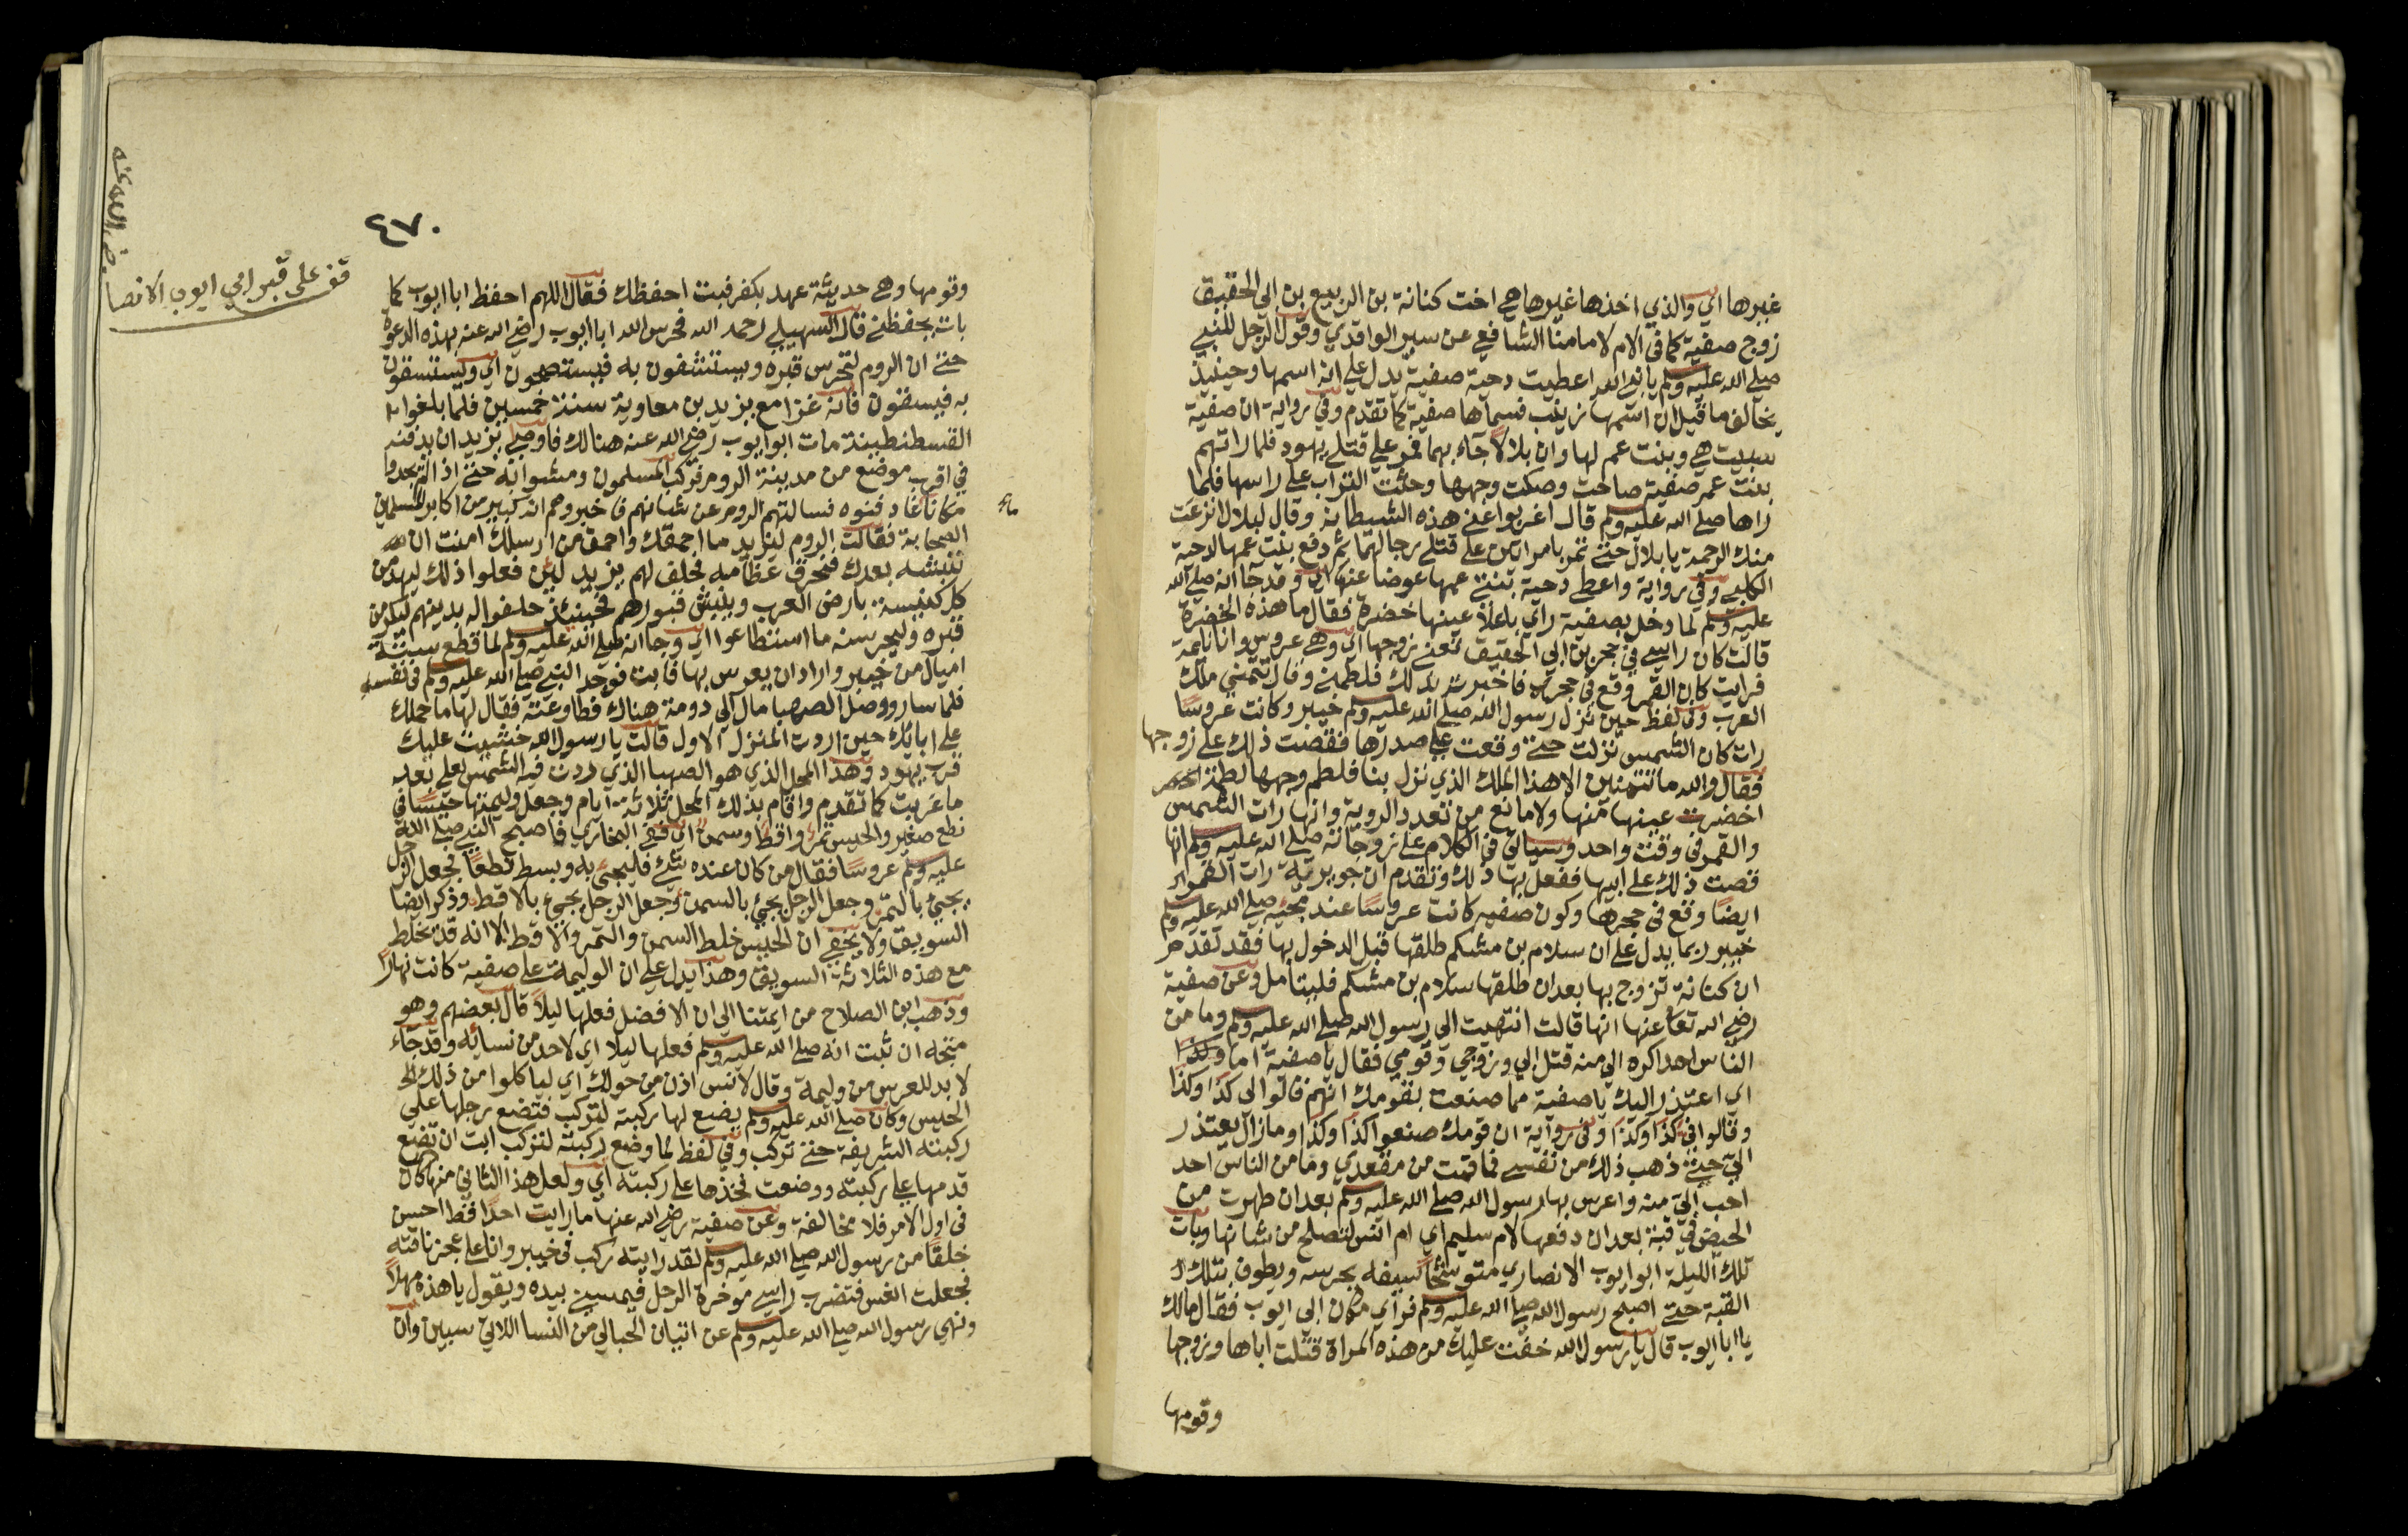 غيرها اي والذي اخذها غيرها هي اخت كنانة بن الربيع بن ابي الحقيق
زوج صفية كما في الام لامامنا الشافعي عن سير الواقدي وقول الرجل للنبي
صلى الله عليه وسلم يا نبي الله اعطيت دحية صفية يدل علي انه اسمها وحينيذ
يخالف ما قيل ان اسمها زينب فسماها صفية كما تقدم وفي رواية ان صفية
سبيت هي وبنت عم لها وان بلالا جاء بهما فمر علي قتلي يهود فلما راتهم
بنت عم صفية صاحت وصكت وجهها وحثت التراب علي راسها فلما
راها صلى الله عليه وسلم قال اغربوا عني هذه الشيطانة وقال لبلال انزعت
منك الرحمة يا بلال حتى تمر بامراتين على قتلي رجالهما ثم دفع بنت عمها لدحية
الكلبي وفي رواية واعطى دحية بنتي عمها عوضا عنها اي وقد جا انه صلى الله
عليه وسلم لما دخل بصفية راي باعلا عينها خضرة فقال ما هذه الخضرة
قالت كان راسي في حجر بن ابي الحقيق تعني زوجها اي وهي عروس وانا نايمة
فرايت كان القمر وقع في حجري فاخبرته بذلك فلطمني وقال تتمني ملك
العرب وفي لفظ حين نزل رسول الله صلى الله عليه وسلم خيبر وكانت عروسا
رات كان الشمس نزلت حتى وقعت علي صدرها فقصت ذلك على زوجها
فقال والله ما تتمنين الا هذا الملك الذي نزل بنا فلطم وجهها لطمة
اخضرت عينها منها ولا مانع من تعدد الروية وانها رات الشمس
والقمر في وقت واحد وسياتي في الكلام على زوجاته صلى الله عليه وسلم انها
قصت ذلك على ابيها ففعل بها ذلك وتقدم ان جويرية رات القمر
ايضا وقع في حجرها وكون صفيه كانت عروسا عند مجيه صلى الله عليه وسلم
خيبر ربما يدل على ان سلام بن مشكم طلقها قبل الدخول بها فقد تقدم
ان كنانة تزوج بها بعد ان طلقها سلام بن مشكم فليتامل وعن صفية
رضي الله تعالى عنها انها قالت انتهيت الي رسول الله صلى الله عليه وسلم وما من
الناس احد اكره الي منه قتل ابي وزوجي وقومي فقال يا صفية اما
اي اعتذر اليك يا صفية مما صنعت بقومك انهم قالوا لي كذا وكذا
وقالوا في كذا وكذا وفي رواية ان قومك صنعوا كذا وكذا وما زال يعتذر
الي حتى ذهب ذلك من نفسي فما قمت من مقعدي وما من الناس احد
احب الي منه واعرس بها رسول الله صلى الله عليه وسلم بعد ان طهرت من
الحيض في قبة بعد ان دفعها لام سليم اي ام انس لتصلح من شانها وبات
تلك الليلة ابو ايوب الانصاري متوشحا سيفه يحرسه ويطوف بتلك
القبة حتى اصبح رسول الله صلى الله عليه وسلم فراي مكان ابي ايوب فقال مالك
يا ابا ايوب قال يا رسول الله خفت عليك من هذه المراة قتلت اباها وزوجها
وقومها
٤٧٠
قف على قبر ابي ايوب الانصا
رضي الله عنه
وقومها وهي حديثة عهد بكفر فبت احفظك فقال اللهم احفظ ابا ايوب كما
بات يحفظني قال السهيلي رحمه الله فحرس الله ابا ايوب رضي الله عنه بهذه الدعوة
حتى ان الروم لتحرس قبره ويستشفون به فيستصحون اي ويستسقون
به فيسقون فانه غزا مع يزيد بن معاوية سنة خمسين فلما بلغوا
القسطنطينة مات ابو ايوب رضي الله عنه هنالك فاوصي يزيد ان يدفنه
في اقرب موضع من مدينة الروم فركب المسلمون ومشوا به حتى اذا لم يجدوا
مكانا دفنوه فسالتهم الروم عن شانهم فاخبروهم انه كبير من اكابر المسلمين
الصحابة فقالت الروم ليزيد ما احمقك واحمق من ارسلك امنت ان
ننبشه بعدك فنحرق عظامه فحلف لهم يزيد لين فعلوا ذلك ليهدمن
كل كنيسة بارض العرب وينبش قبورهم فحينئذ حلفوا له بدينهم ليكرمن
قبره وليحرسنه ما استطاعوا اي وجا انه صلى الله عليه وسلم لما قطع ستة
اميال من خيبر واراد ان يعرس بها فابت فوجد النبي صلى الله عليه وسلم في نفسه
فلما سار ووصل الصهبا مال الي دومة هناك فطاوعته فقال لها ما حملك
على ابائك حين اردت المنزل الاول قالت يا رسول الله خشيت عليك
قرب يهود وهذا المحل الذي هو الصهبا الذي ردت فيه الشمس لعلي بعد
ما غربت كما تقدم واقام بذلك المحل ثلاثة ايام وجعل وليمتها حيسا في
نطع صغير والحيس تمر واقط وسمن ففي البخاري فاصبح النبي صلى الله
عليه وسلم عروسا فقال من كان عنده شي فليجي به وبسط نطعا فجعل الرجل
يجي بالتمر وجعل الرجل يجي بالسمن وجعل الرجل يجي بالاقط وذكر ايضا
السويق ولا يخفي ان الحيس خلط السمن والتمر والاقط الا انه قد يخلط
مع هذه الثلاثة السويق وهذا يدل علي ان الوليمة على صفية كانت نهارا
وذهب ابن الصلاح من ايمتنا الي ان الافضل فعلها ليلا قال بعضهم وهو
متجه ان ثبت انه صلى الله عليه وسلم فعلها ليلا اي لاحد من نسائه وقد جاء
لا بد للعرس من وليمة وقال لانس اذن من حولك اي لياكلوا من ذلك
الحيس وكان صلى الله عليه وسلم يضع لها ركبته لتركب فتضع رجلها علي
ركبته الشريفة حتى تركب وفي لفظ لما وضع ركبته لتركب ابت ان تضع
قدمها علي ركبته ووضعت فخذها على ركبته اي ولعل هذا الثاني منها كان
في اول الامر فلا مخالفة وعن صفية رضي الله عنها ما رايت احدا قط احسن
خلقا من رسول الله صلى الله عليه وسلم لقد رايته ركب في خيبر وانا على عجز ناقته
فجعلت انعس فتضرب راسي موخرة الرحل فيمسني بيده ويقول يا هذه مهلا
ونهي رسول الله صلى الله عليه وسلم عن اتيان الحبالي من النسا اللاتي سبين وان